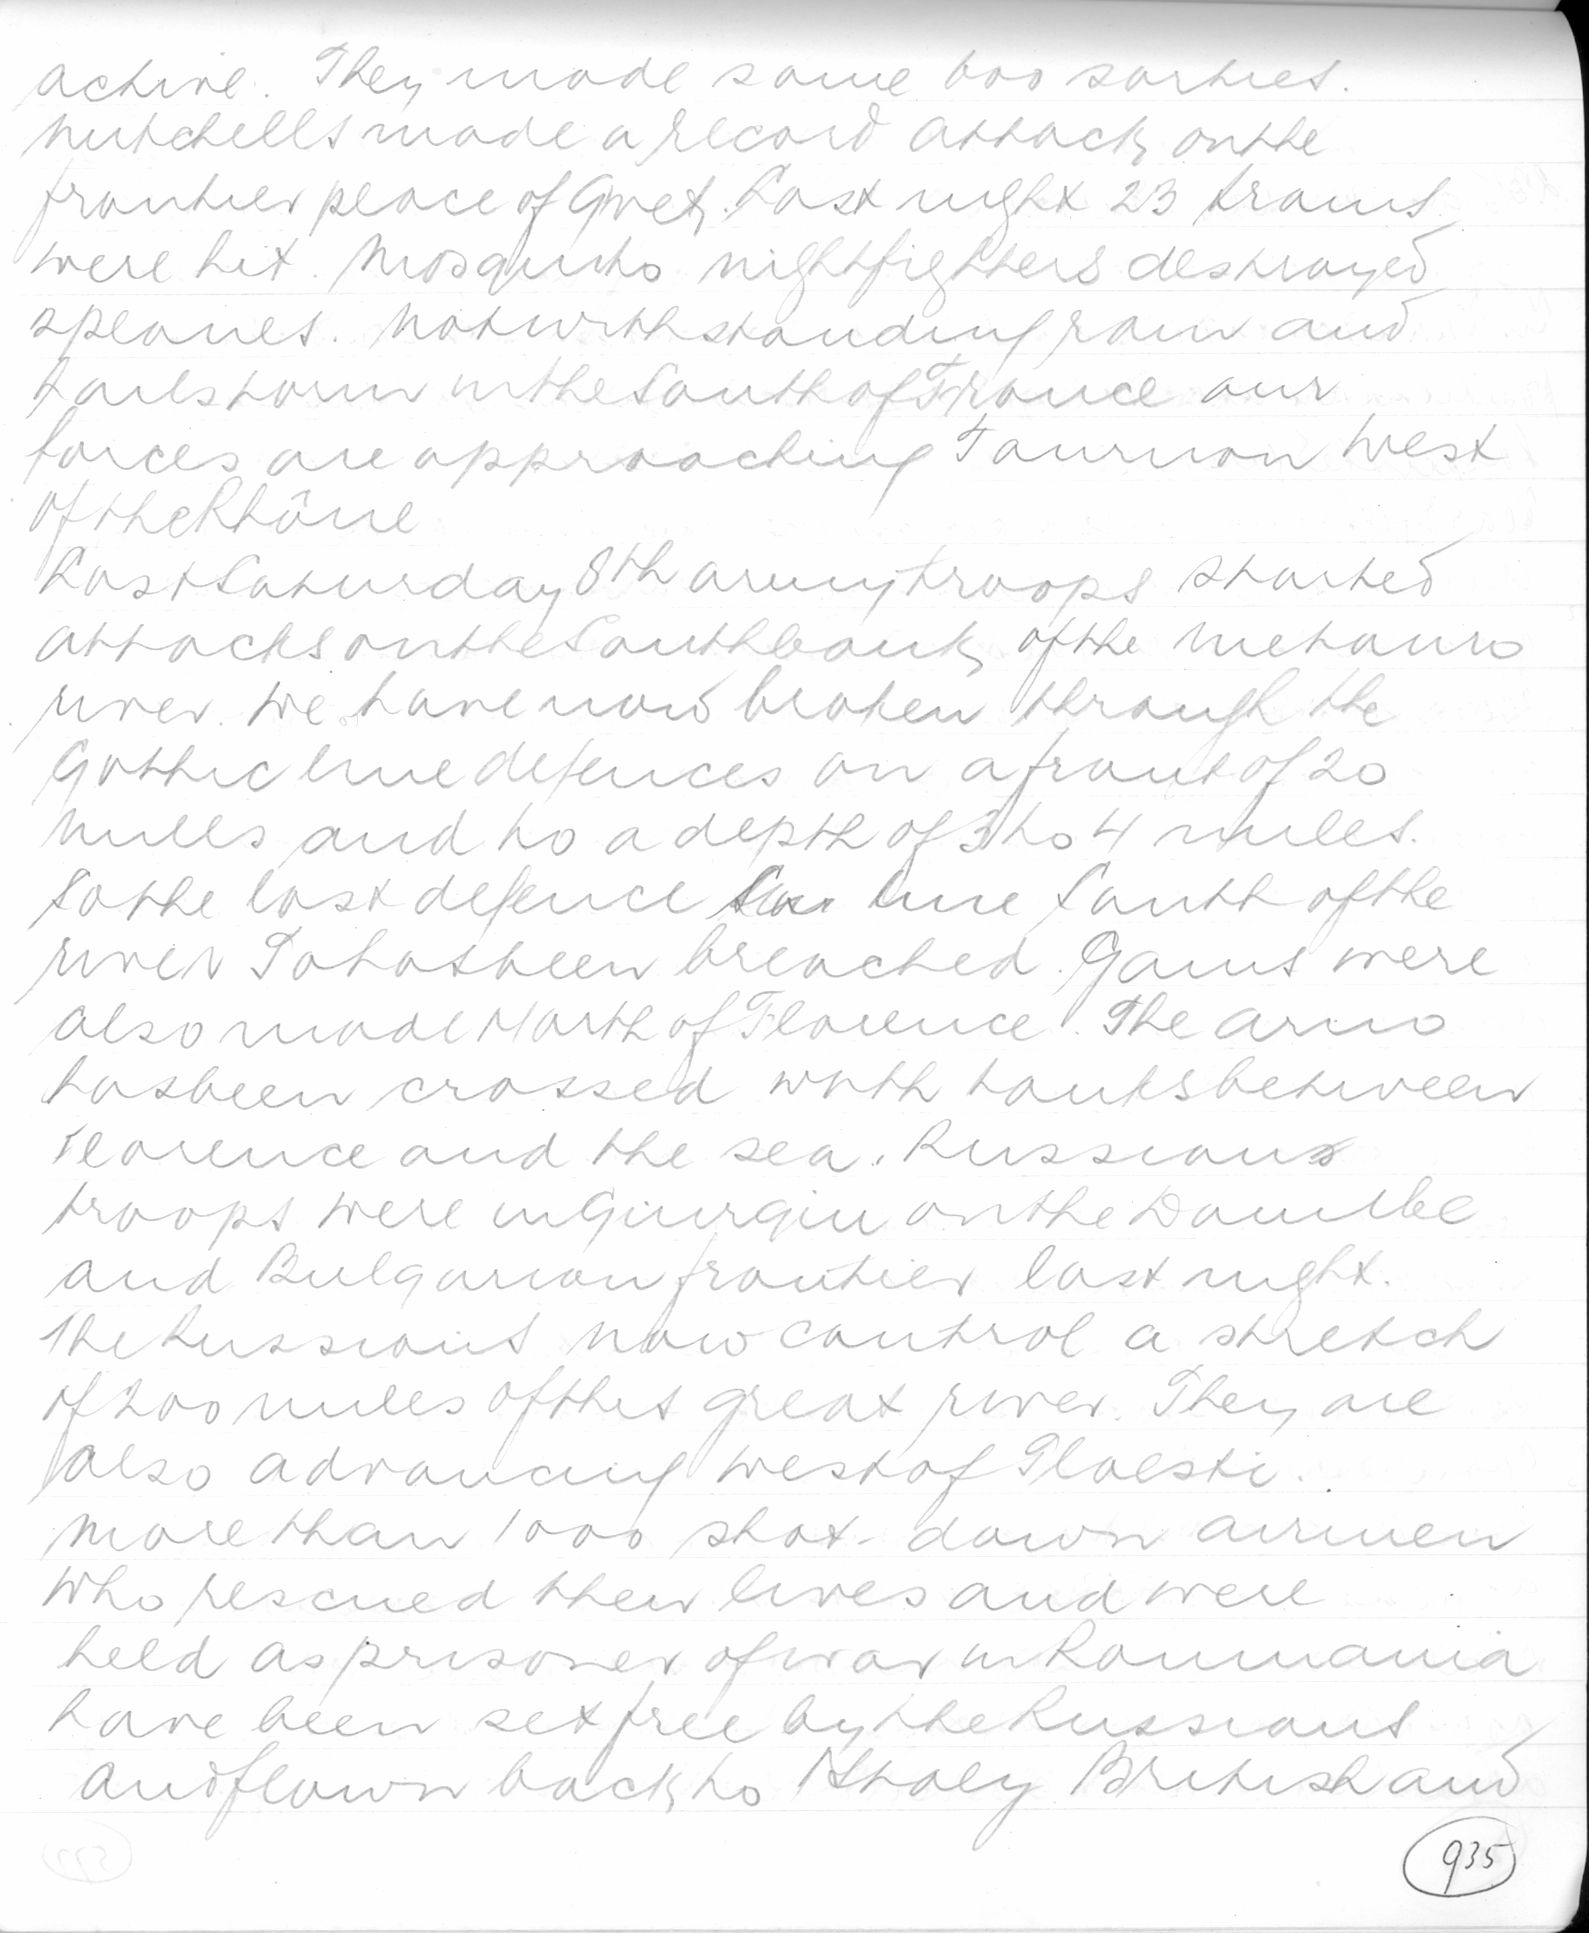 active. They made some 600 sorties.
Mitchells made a record attack on the
frontier place of Givet. Last night 23 trains
were hit. Mosquito nightfighters destroyed
2 planes. Notwithstanding rain and
hailstorm in the South of France our
forces are approaching Tournon West
of the Rhône
Last Saturday 8th army troops started
attacks on the South bank of the Metauro
river. We have now broken through the
Gothic line defences on a front of 20
miles and to a depth of 3 to 4 miles.
So the last defence line South of the
river Po has been breached. Gains were
also made North of Florence. The Arno
has been crossed with tanks between
Florence and the sea. Russians
troops were in Giurgiu on the Danube
and Bulgarian frontier last night.
The Russians now control a stretch
of 200 miles of this great river. They are
also advancing west of Ploesti.
More than 1000 shot-down airmen
who rescued their lives and were
held as prisoner of war in Roumania
have been set free by the Russians
and flown back to Italy British and
935